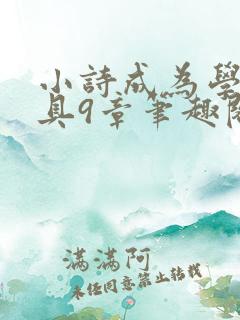 小詩成為學
具9章筆趣閣
滿滿阿
未經同意禁止轉載